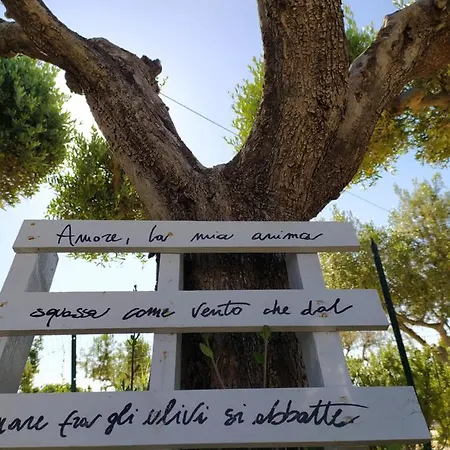 Amore, la mia anima
squassa come vento che dal
mare fra gli ulivi si abbatte